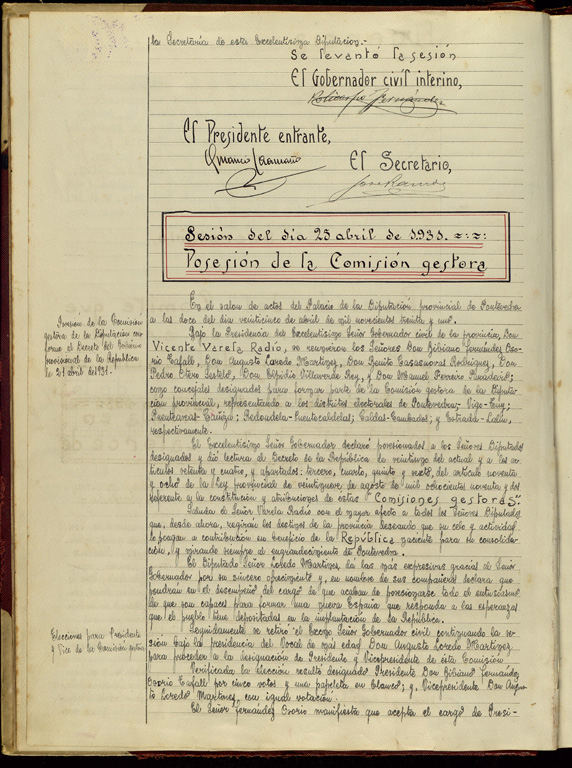 la Secretaría de esta Excelentísima Diputacion.-
Se levantó la sesión
El Gobernador civil interino,
El Presidente entrante,
El Secretario,
Sesión del dia 25 abril de 1931.
Posesión de la Comisión gestora
En el salon de actos del Palacio de la Diputación provincial de Pontevedra
a las doce del dia veinticinco de abril de mil novecientos treinta y uno.
Bajo la Presidencia del Excelentísimo Señor Gobernador civil de la provincia, Don
Vicente Varela Radío, se reunieron los Señores Don Bibiano Fernández Oso-
rio Tafall, Don Augusto Loredo Martinez, Don Benito Casasnovas Rodríguez, Don
Pedro Otero Don Elpidio Villaverde Rey, y Don Manuel Ferreiro
como concejales designados para formar parte de la Comisión gestora de la Diputa-
ción provincial, representando a los distritos electorales de Pontevedra; Vigo-Tuy;
Puenteareas-Cañiza; Redondela-Puentecaldelas; Caldas-Cambados; y Estrada-Lalin,
respectivamente.
El Excelentísimo Señor Gobernador declaró posesionados a los Señores Diputados
designados y dió lectura al Decreto de la República de veintiuno del actual y a los ar-
tículos setenta y cuatro, y apartados: tercero, cuarto, quinto y sexto, del artículo noventa
y ocho de la Ley provincial de veintinueve de agosto de mil ochocientos noventa y dos
referente a la constitución y atribuciones de estas "Comisiones gestoras".
Saluda el Señor Varela Radío con el mayor afecto a todos los Señores Diputados
que, desde ahora, regirán los destinos de la provincia deseando que su celo y actividad
lo hagan a contribución en beneficio de la República naciente para su consolida-
ción, y mirando siempre al engrandecimiento de Pontevedra.
El Diputado Señor Loredo Martinez da las más expresivas gracias al Señor
Gobernador por su sincero ofrecimiento y, en nombre de sus compañeros declara que
pondrán en el desempeño del cargo de que acaban de posesionarse todo el entusiasmo
de que son capaces para formar una nueva España que responda a las esperanzas
que el pueblo tiene depositadas en la implantación de la República.
Seguidamente se retiró el Excmo Señor Gobernador civil continuando la se-
sión bajo la presidencia del Vocal de mas edad Don Augusto Loredo Martinez
para proceder a la designación de Presidente y Vicepresidente de esta Comisión
Verificada la elección resultó designado Presidente Don Bibiano Fernández
Osorio Tafall por cinco votos y una papeleta en blanco; y, Vicepresidente Don Augus-
to Loredo Martinez, con igual votación.
El Señor Fernández Osorio manifiesta que acepta el cargo de Presi-
de la Comisión
gestora de la Diputación con-
forme al Decreto del Gobierno
provisional de la República
de 21 abril de 931.
Elecciones para Presidente
y Vice de la Comisión gestora